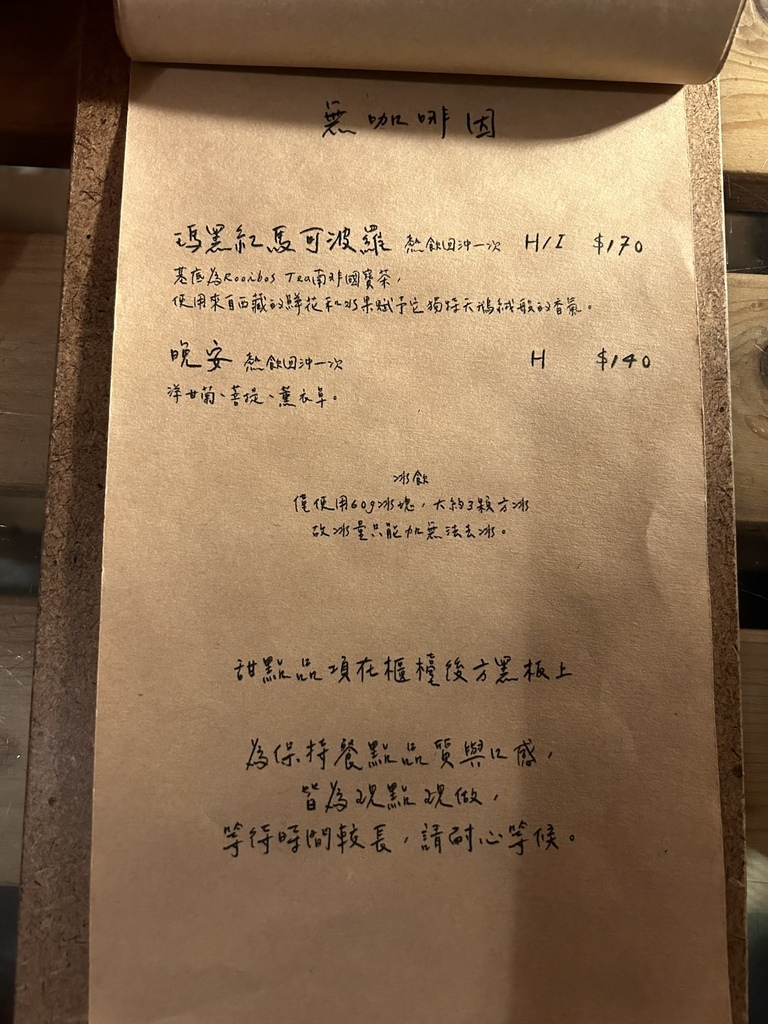 無咖啡因
瑪黑紅馬可波羅 熱飲回沖一次 H/I $170
基底為Rooibos Tea南非國寶茶，
使用來自西藏的鮮花和水果賦予它獨特天鵝絨般的香氣。
晚安 熱飲回沖一次 H $140
洋甘菊、菩提、薰衣草。
冰飲
僅使用60g冰塊，大約3顆方冰
故冰量只能加無法去冰。
甜點品項在櫃檯後方黑板上
為保持餐點品質與口感，
皆為現點現做，
等待時間較長，請耐心等候。